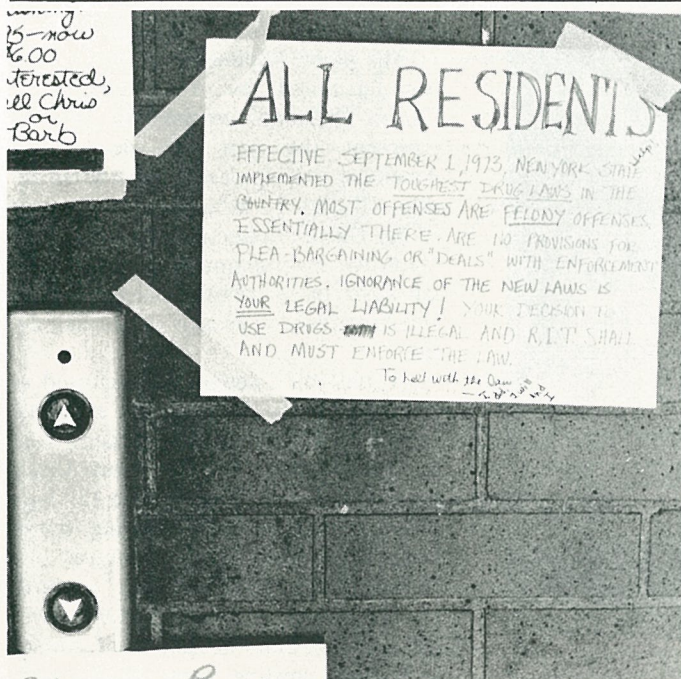 5-now
6.00
terested,
ll Chris
or
Barb
ALL RESIDENTS
EFFECTIVE SEPTEMBER 1, 1973, NEW YORK STATE
IMPLEMENTED THE TOUGHEST DRUG LAWS IN THE
COUNTRY. MOST OFFENSES ARE FELONY OFFENSES.
ESSENTIALLY THERE ARE NO PROVISIONS FOR
PLEA-BARGAINING OR "DEALS" WITH ENFORCEMENT
AUTHORITIES. IGNORANCE OF THE NEW LAWS IS
YOUR LEGAL LIABILITY! YOUR DECISION TO
USE DRUGS IS ILLEGAL AND R.I.T SHALL
AND MUST ENFORCE THE LAW.
To hell with the law